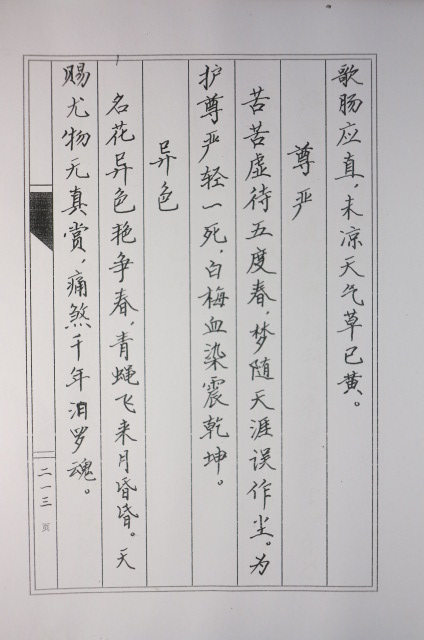 歌肠应直，未凉天气草已黄。
尊严
苦苦虚待五度春，梦随天涯误作尘。为
护尊严轻一死，白梅血染震乾坤。
异色
名花异色艳争春，青蝇飞来月昏昏。天
赐尤物无真赏，痛煞千年汨罗魂。
二一三页